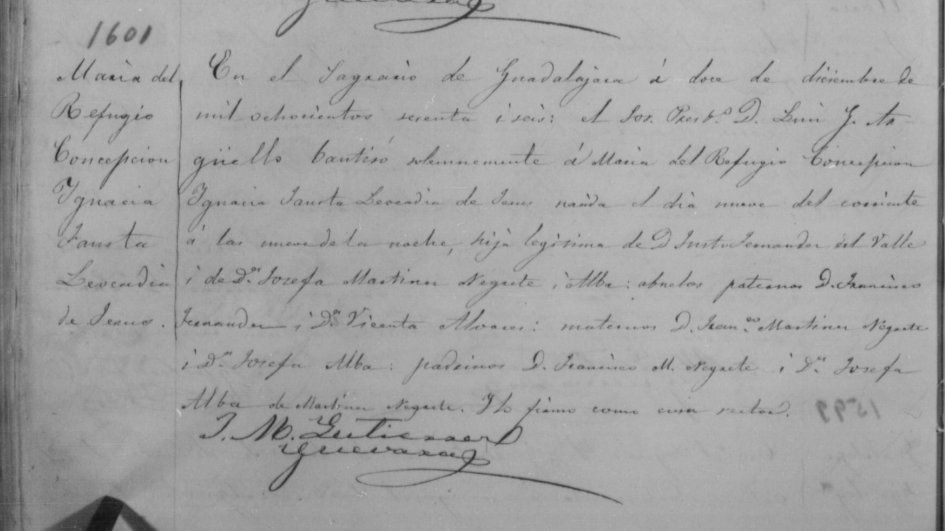 1601
Maria del
Refugio
Concepcion
Ygnacia
Fausta
Leocadia
de Jesus.
En el Sagrario de Guadalajara á doce de diciembre de
mil ochocientos sesenta i seis: el Sor. Presb.o D. Luis G. Ar
güello bautisó solemnemente á Maria del Refugio Concepcion
Ygnacia Fausta Leocadia de Jesus nacida el dia nueve del corriente
á las nueve de la noche, hija legitima de D. Justo Fernandez del Valle
i de Dª Josefa Martinez Negrete i Alba: abuelos paternos D. Francisco
Fernandez i Dª Vicenta Alvares: maternos D. Fran.co Martinez Negrete
i Dª Josefa Alba: padrinos D. Francisco M. Negrete i Dª Josefa
Alba de Martinez Negrete. Y lo firmo como cura rector.
J. M. Gutierrez
Guevara